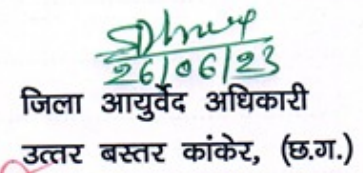 26/06/23
जिला आयुर्वेद अधिकारी
उत्तर बस्तर कांकेर, (छ.ग.)